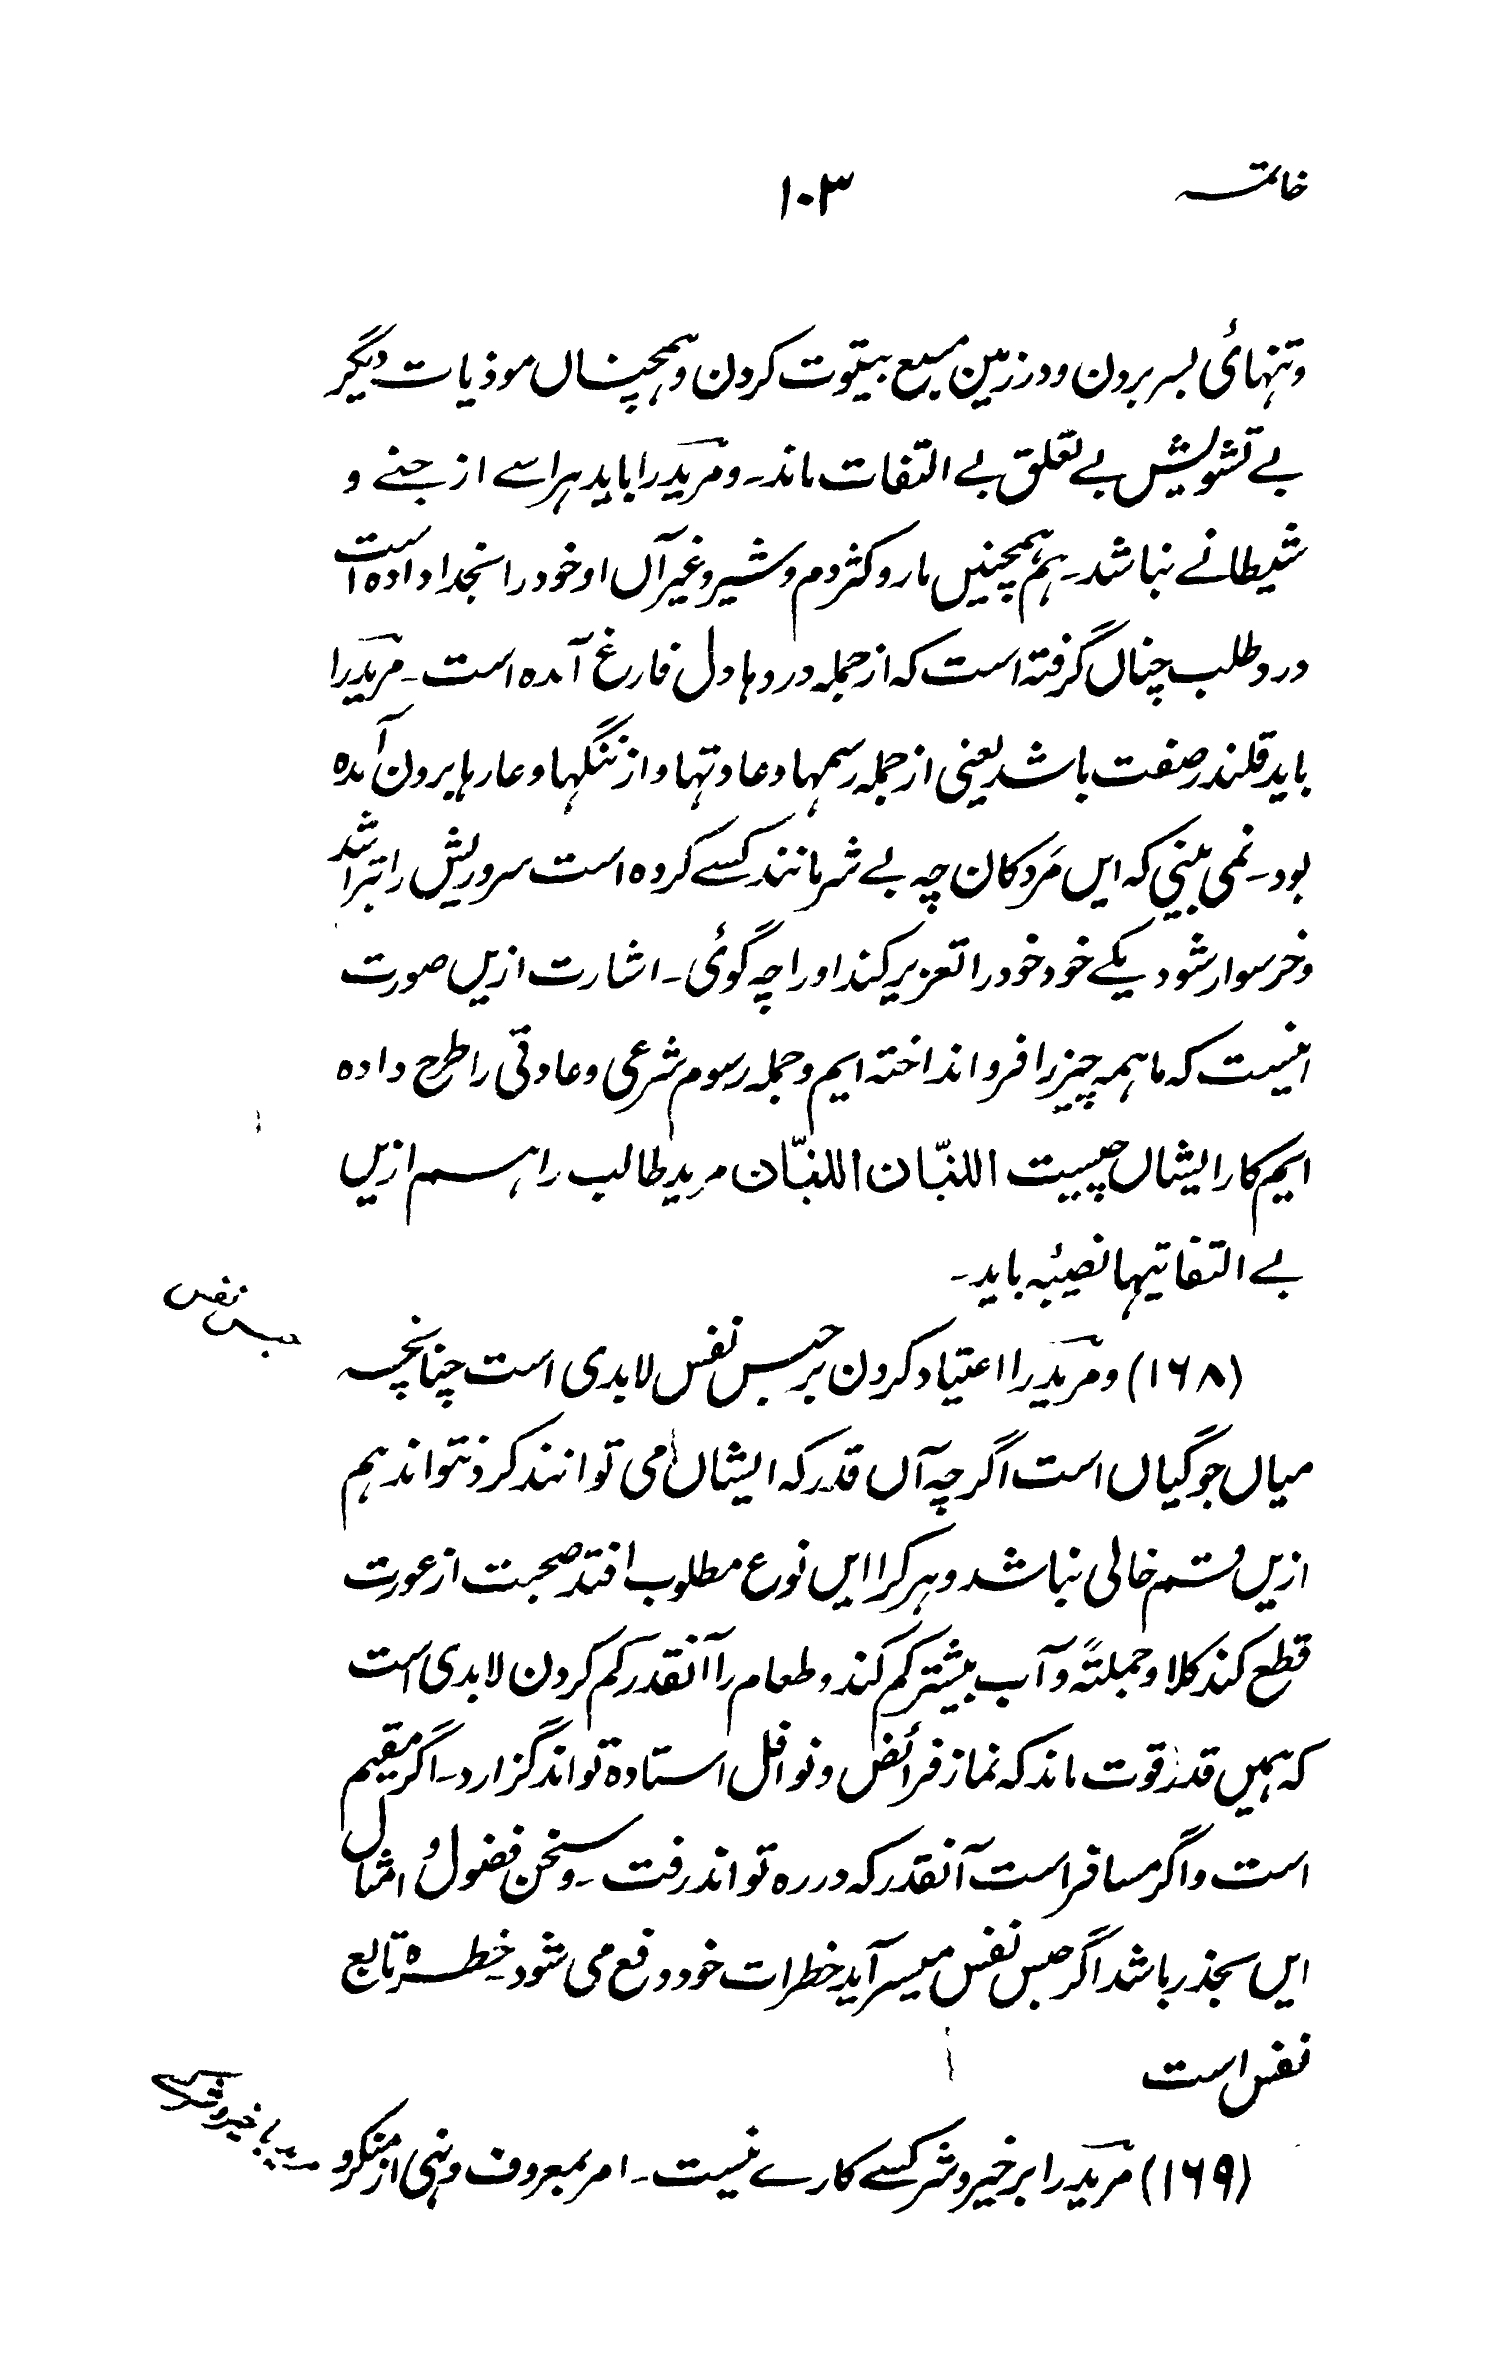 خاتمہ
۱۰۳
وتنہائی بسر بردن و در زمین مسبع بیتوت کردن و ہمچناں موذیات دیگر
بے تشویش بے تعلق بے التفات ماند۔ و مرید را باید ہراسے از جنے و
شیطانے نباشد۔ ہم ہمچنیں مار و کژدم و شیر و غیر آں او خود را بخدا داده است
درد طلب چناں گرفتہ است کہ از جملہ دردہا دل فارغ آمدہ است۔ مرید را
باید قلندر صفت باشد یعنی از جملہ رسمہا و عادتہا و از ننگہا و عارہا برون آمدہ
بود۔ نمی بینی کہ ایں مَردکان چہ بے شرمانند کسے کردہ است سروریش را تراشد
و خر سوار شود یکے خود خود را تعزیر کند او را چہ گوئی۔ اشارت ازیں صورت
اینست کہ ما ہمہ چیز را فرو انداختہ ایم و جملہ رسوم شرعی و عادتی را طرح داده
ایم کار ایشاں چیست اللبّان اللبّان مرید طالب را ہم ازیں
بے التفاتیہا نصیبہ باید۔
(۱۶۸) و مرید را اعتیاد کردن بر حبس نفس لابدی است چنانچہ
میاں جوگیاں است اگرچہ آں قدر کہ ایشاں می توانند کرد نتواند ہم
ازیں قسم خالی نباشد و ہر کرا ایں نوع مطلوب افتد صحبت از عورت
قطع کند کلا و جملتہً و آب بیشتر کم کند و طعام را آنقدر کم کردن لابدی است
کہ ہمیں قدر قوت ماند کہ نماز فرائض و نوافل استادة تواند گزارد۔ اگر مقیم
است و اگر مسافر است آنقدر کہ در رہ تواند رفت۔ و سخن فضول و امثال
ایں بحذر باشد اگر حبس نفس میسر آید خطرات خود دفع می شود۔ خطرہ تابع
نفس است
(۱۶۹) مرید را بر خیر و شر کسے کارے نیست۔ امر بمعروف و نہی از منکر و
حبس نفس